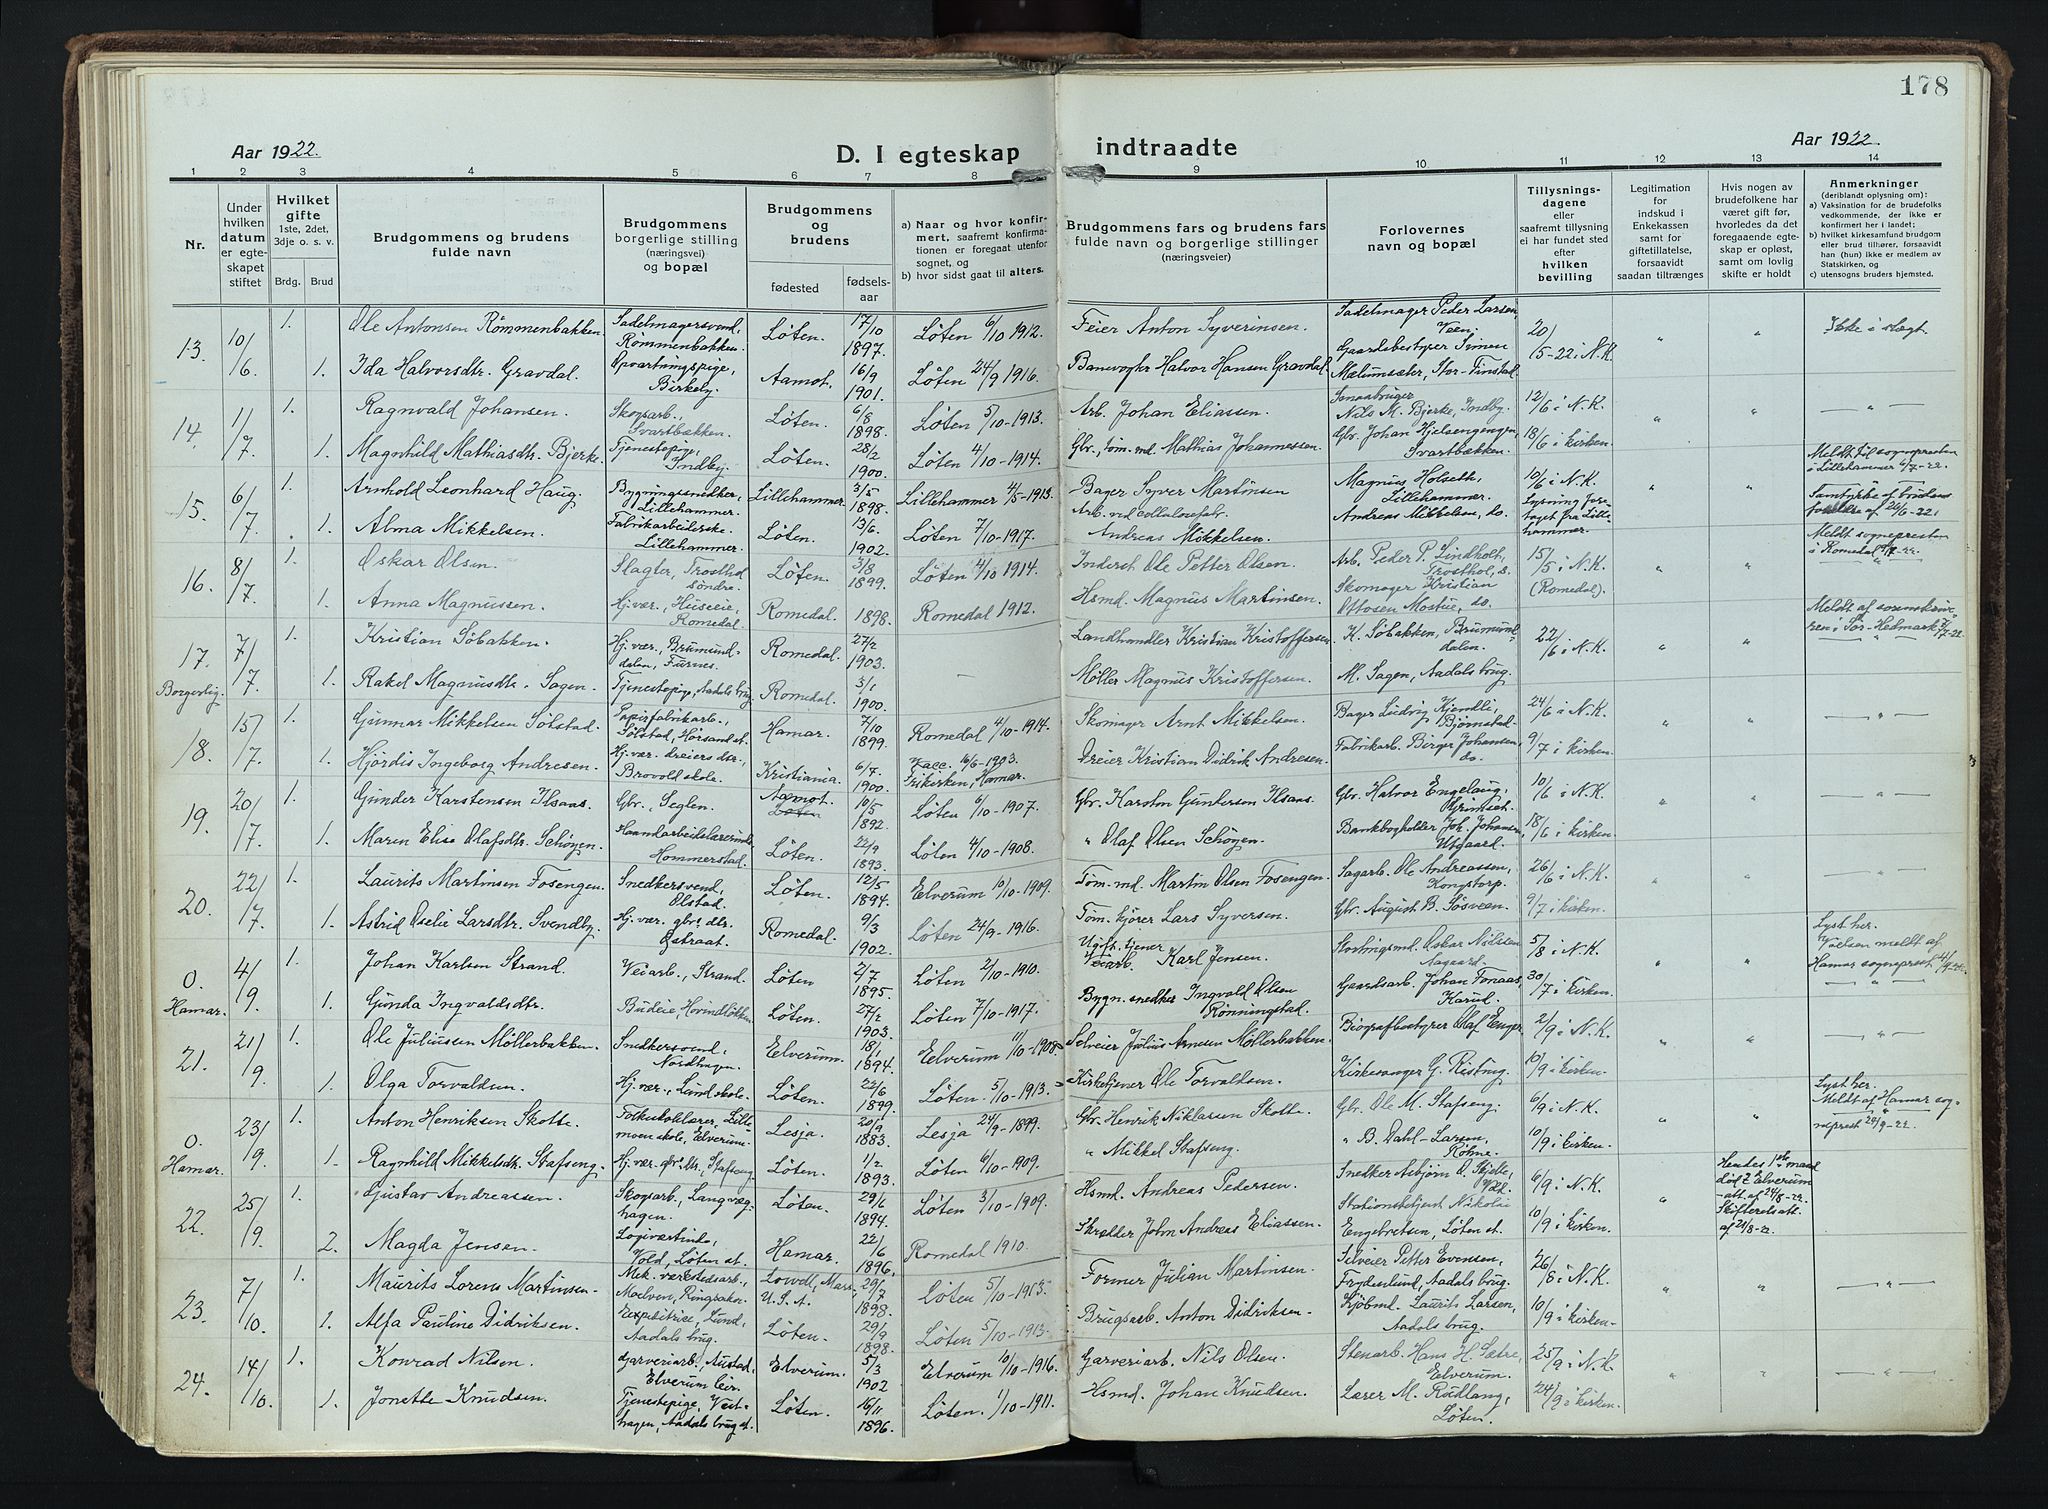 178
Aar 1922.
D. I egteskap indtraadte
Aar 1922.
1 2 3 4 5 6 7 8 9 10 11 12 13 14
Nr.
Under hvilken datum er egteskapet stiftet
Hvilket gifte 1ste, 2det, 3dje o. s. v.
Brdg. Brud
Brudgommens og brudens fulde navn
Brudgommens borgerlige stilling (næringsvei) og bopæl
Brudgommens og brudens
fødested fødselsaar
a) Naar og hvor konfirmert, saafremt konfirmationen er foregaat utenfor sognet, og
b) hvor sidst gaat til alters.
Brudgommens fars og brudens fars fulde navn og borgerlige stillinger (næringsveier)
Forlovernes navn og bopæl
Tillysningsdagene eller saafremt tillysning ei har fundet sted efter hvilken bevilling
Legitimation for indskud i Enkekassen samt for giftetillatelse, forsaavidt saadan tiltrænges
Hvis nogen av brudefolkene har været gift før, hvorledes da det foregaaende egteskap er opløst, samt om lovlig skifte er holdt
Anmerkninger
(deriblandt oplysning om):
a) Vaksination for de brudefolks vedkommende, der ikke er konfirmert her i landet;
b) hvilket kirkesamfund brudgom eller brud tilhører, forsaavidt han (hun) ikke er medlem av Statskirken, og
c) utensogns bruders hjemsted.
13. 10/6 1. Ole Antonsen Rømmenbakken. Sadelmagersvend, Rømmenbakken. Løten. 17/10 1897. Løten 6/10 1912. Feier Anton Syverinsen. Sadelmager Peder Larsen, Veen. 20/5-22 i N.K. " " Ikke i slegt.
1. Ida Halvorsdtr. Gravdal. Opvartningspige, Birkeby. Aamot. 16/9 1901. Løten 24/9 1916. Banevogter Halvor Hansen Gravdal. Gaardsbestyrer Simen Mælumsæter, Stor-Finstad.
14. 1/7 1. Ragnvald Johansen. Skogsarb., Svartbækken. Løten. 6/8 1898. Løten 5/10-1913. Arb. Johan Eliassen. Smaabruger Nils M. Bjerke, Indby. 12/6 i N.K. " " — " —
1. Magnhild Mathiasdtr. Bjerke. Tjenestepige, Indby. Løten. 28/2 1900. Løten 4/10-1914. Gbr., tøm.md. Mathias Johannessen. Gbr. Johan Hjelsengengen, Svartbækken. 18/6 i kirken.
15. 6/7 1. Arnhold Leonhard Haug. Bygningssnedker, Lillehammer. Lillehammer. 3/5 1898. Lillehammer 4/5-1913. Bager Syver Martinsen Magnus Holseth, Lillehammer. 10/6 i N.K. " " Meldt til sognepresten i Lillehammer 6/7-22. Samtykke af brudens forældre af 26/6-22.
1. Alma Mikkelsen. Fabrikarbeiderske. Lillehammer. Løten. 13/6. 1902. Løten 7/10-1917. Arb. ved cellulosefabr. Andreas Mikkelsen. Andreas Mikkelsen, do. Lysning foretaget fra Lillehammer.
16. 8/7 1. Oskar Olsen. Slagter, Trosthol søndre. Løten. 3/8 1899. Løten 4/10 1914. Inderst Ole Petter Olsen. Arb. Peder P. Lindholt, Trosthol, s. 15/5 i N.K. (Romedal). " " Meldt sognepresten i Romedal 8/7-22. — " —
1. Anna Magnussen. Hj.vær., Huseeie, Romedal. Romedal. 1898. Romedal 1912. Hsmd. Magnus Martinsen. Skomager Kristian Ottosen Mostue, do.
17. Borgerlig. 7/7 1. Kristian Søbakken. Hj. vær., Brumunddalen, Furnes. Romedal. 27/2 1903. — Landhandler Kristian Kristoffersen K. Søbakken, Brumunddalen. 22/6 i N.K. " " Meldt af sorenskriveren i Sør-Hedmark 7/7-22. — " —
1. Rakel Magnusdtr. Sagen. Tjenestepige, Aadals brug. Romedal. 3/1 1900. Møller Magnus Kristoffersen. M. Sagen, Aadals brug.
18. 15/7 1. Gunnar Mikkelsen Sølstad. Papirfabrikarb., Sølstad, Hørsand st. Hamar. 7/10 1899. Romedal 4/10-1914. Skomager Arnt Mikkelsen. Bager Ludvig Kjendli, Bjørnstad. 24/6 i N.K. " " — " —
1. Hjørdis Ingeborg Andresen. Hj.vær. dreiers dtr., Brovold skole. Kristiania. 6/7. 1900. Vacc. 16/6-1903. Frikirken, Hamar. Dreier Kristian Didrik Andresen. Fabrikarb. Birger Johansen, do. 9/7 i kirken.
19. 20/7 1. Gunder Karstensen Ilsaas. Gbr., Seglen. Aamot. 10/5 1892. Løten 6/10-1907. Gbr. Karsten Gundersen Ilsaas. Gbr. Halvor Engelaug, Grimset. 10/6 i N.K. " " — " —
1. Maren Elise Olafsdtr. Schøyen. Haandarbeidslærerinde, Hommerstad. Løten. 22/9 1893. Løten 4/10-1908. " Olaf Olsen Schøyen. Bankbogholder Joh. Johansen, Utgaard. 18/6 i kirken.
20. 22/7 1. Laurits Martinsen Fosengen. Snedkersvend, Ølstad. Løten. 12/5 1894. Elverum 10/10-1909. Tøm.md. Martin Olsen Fosengen. Sagarb. Ole Andreassen, Kongstorp. 26/6 i N.K. " "
1. Astrid Oselie Larsdtr. Svendby. Hj. vær. gbr. dtr. Østraat. Romedal. 9/3 1902. Løten 24/9-1916. Tøm. kjører Lars Syversen. Gbr. August B. Søsveen. 9/7 i kirken.
0. Hamar. 4/9 1. Johan Karlsen Strand. Veiarb., Strand. Løten 2/7 1895. Løten 2/10-1910. Ugift tjener Veiarb. Karl Jensen. Stortingsmd. Oskar Nilssen Aagaard. 5/8 i N.K. " " Lyst her. Vielsen meldt af Hamar sogneprest 4/9-22. — " —
1. Gunda Ingvaldsdtr. Budeie, Hovindløkken. Løten. 27/2 1903. Løten 7/10-1917. Bygn.snedker Ingvald Olsen Rønningstad. Gaardsarb. Johan Tonaas, Karud. 30/7 i kirken.
21. 21/9 1. Ole Juliussen Møllerbakken. Snedkersvend, Nordhagen. Elverum. 18/1 1894. Elverum 11/10-1908. Selveier Julius Arnesen Møllerbakken. Biografbestyrer Olaf Enger 2/9 i N.K. " " — " —
1. Olga Torvaldsen. Hj. vær., Lund skole. Løten. 22/6 1899. Løten. 5/10-1913. Kirketjener Ole Torvaldsen. Kirkesanger G. Ristvig. 10/9 i kirken.
0. Hamar. 23/9 1. Anton Henriksen Skotte. Folkskolelærer, Lillemoen skole, Elverum. Lesja. 20/9 1883. Lesja 24/9-1899. Gbr. Henrik Niklasen Skotte. Gbr. Ole M. Stafseng. 6/9 i N.K. " " Lyst her. Meldt af Hamar sogneprest 29/9-22.
1. Ragnhild Mikkelsdtr. Stafseng. Hj. vær. gbr's dtr., Stafseng. Løten. 1/2 1893. Løten 6/10-1909. " Mikkel Stafseng. " B. Dahl-Larsen, Røhne. 10/9 i kirken.
22. 25/9 1. Gustav Andreassen. Skogsarb., Langveghagen. Løten. 29/6 1894. Løten 3/10-1909. Hsmd. Andreas Pedersen. Snedker Asbjørn O. Skjelle, Vold. 6/9 i N.K. " Hendes 1ste mand død i Elverum -att. af 24/8-22. Skifteretsatt. af 21/8-22.
2. Magda Jensen. Logiværtinde, Vold, Løten st. Hamar. 22/6 1896. Romedal 1910. Skrædder John Andreas Eliassen. Stationsbetjent Nikolai Engebretsen, Løten st. 10/9 i kirken.
23. 7/10. 1. Maurits Lorens Martinsen. Mek. værkstedsarb., Moelven, Ringsaker. Lowell, Mass. U.S.A. 29/7 1898. Løten 5/10-1913. Former Julian Martinsen. Selveier Petter Evensen, Frydenlund, Aadals brug. 26/8 i N.K. " " — " —
1. Alfa Pauline Didriksen. Expeditrice, Lund, Aadals brug. Løten. 29/9 1898. Løten 5/10-1913. Brugsarb. Anton Didriksen. Kjøbmd. Laurits Larsen, Aadals brug. 10/9 i kirken.
24. 14/10. 1. Konrad Nilsen. Garveriarb., Austad, Elverum leir. Elverum. 5/3 1902 Elverum 10/10-1916. Garveriarb. Nils Olsen. Stenarb. Hans H. Sætre, Elverum. 25/9 i N.K. " " — " —
1. Jonette Knudsen. Tjenestepige, Vesthagen, Aadals brug st. Løten. 16/11 1896. Løten. 1/10-1911. Hsmd. Johan Knudsen. Lærer M. Rudlang, Løten. 24/9 i kirken.